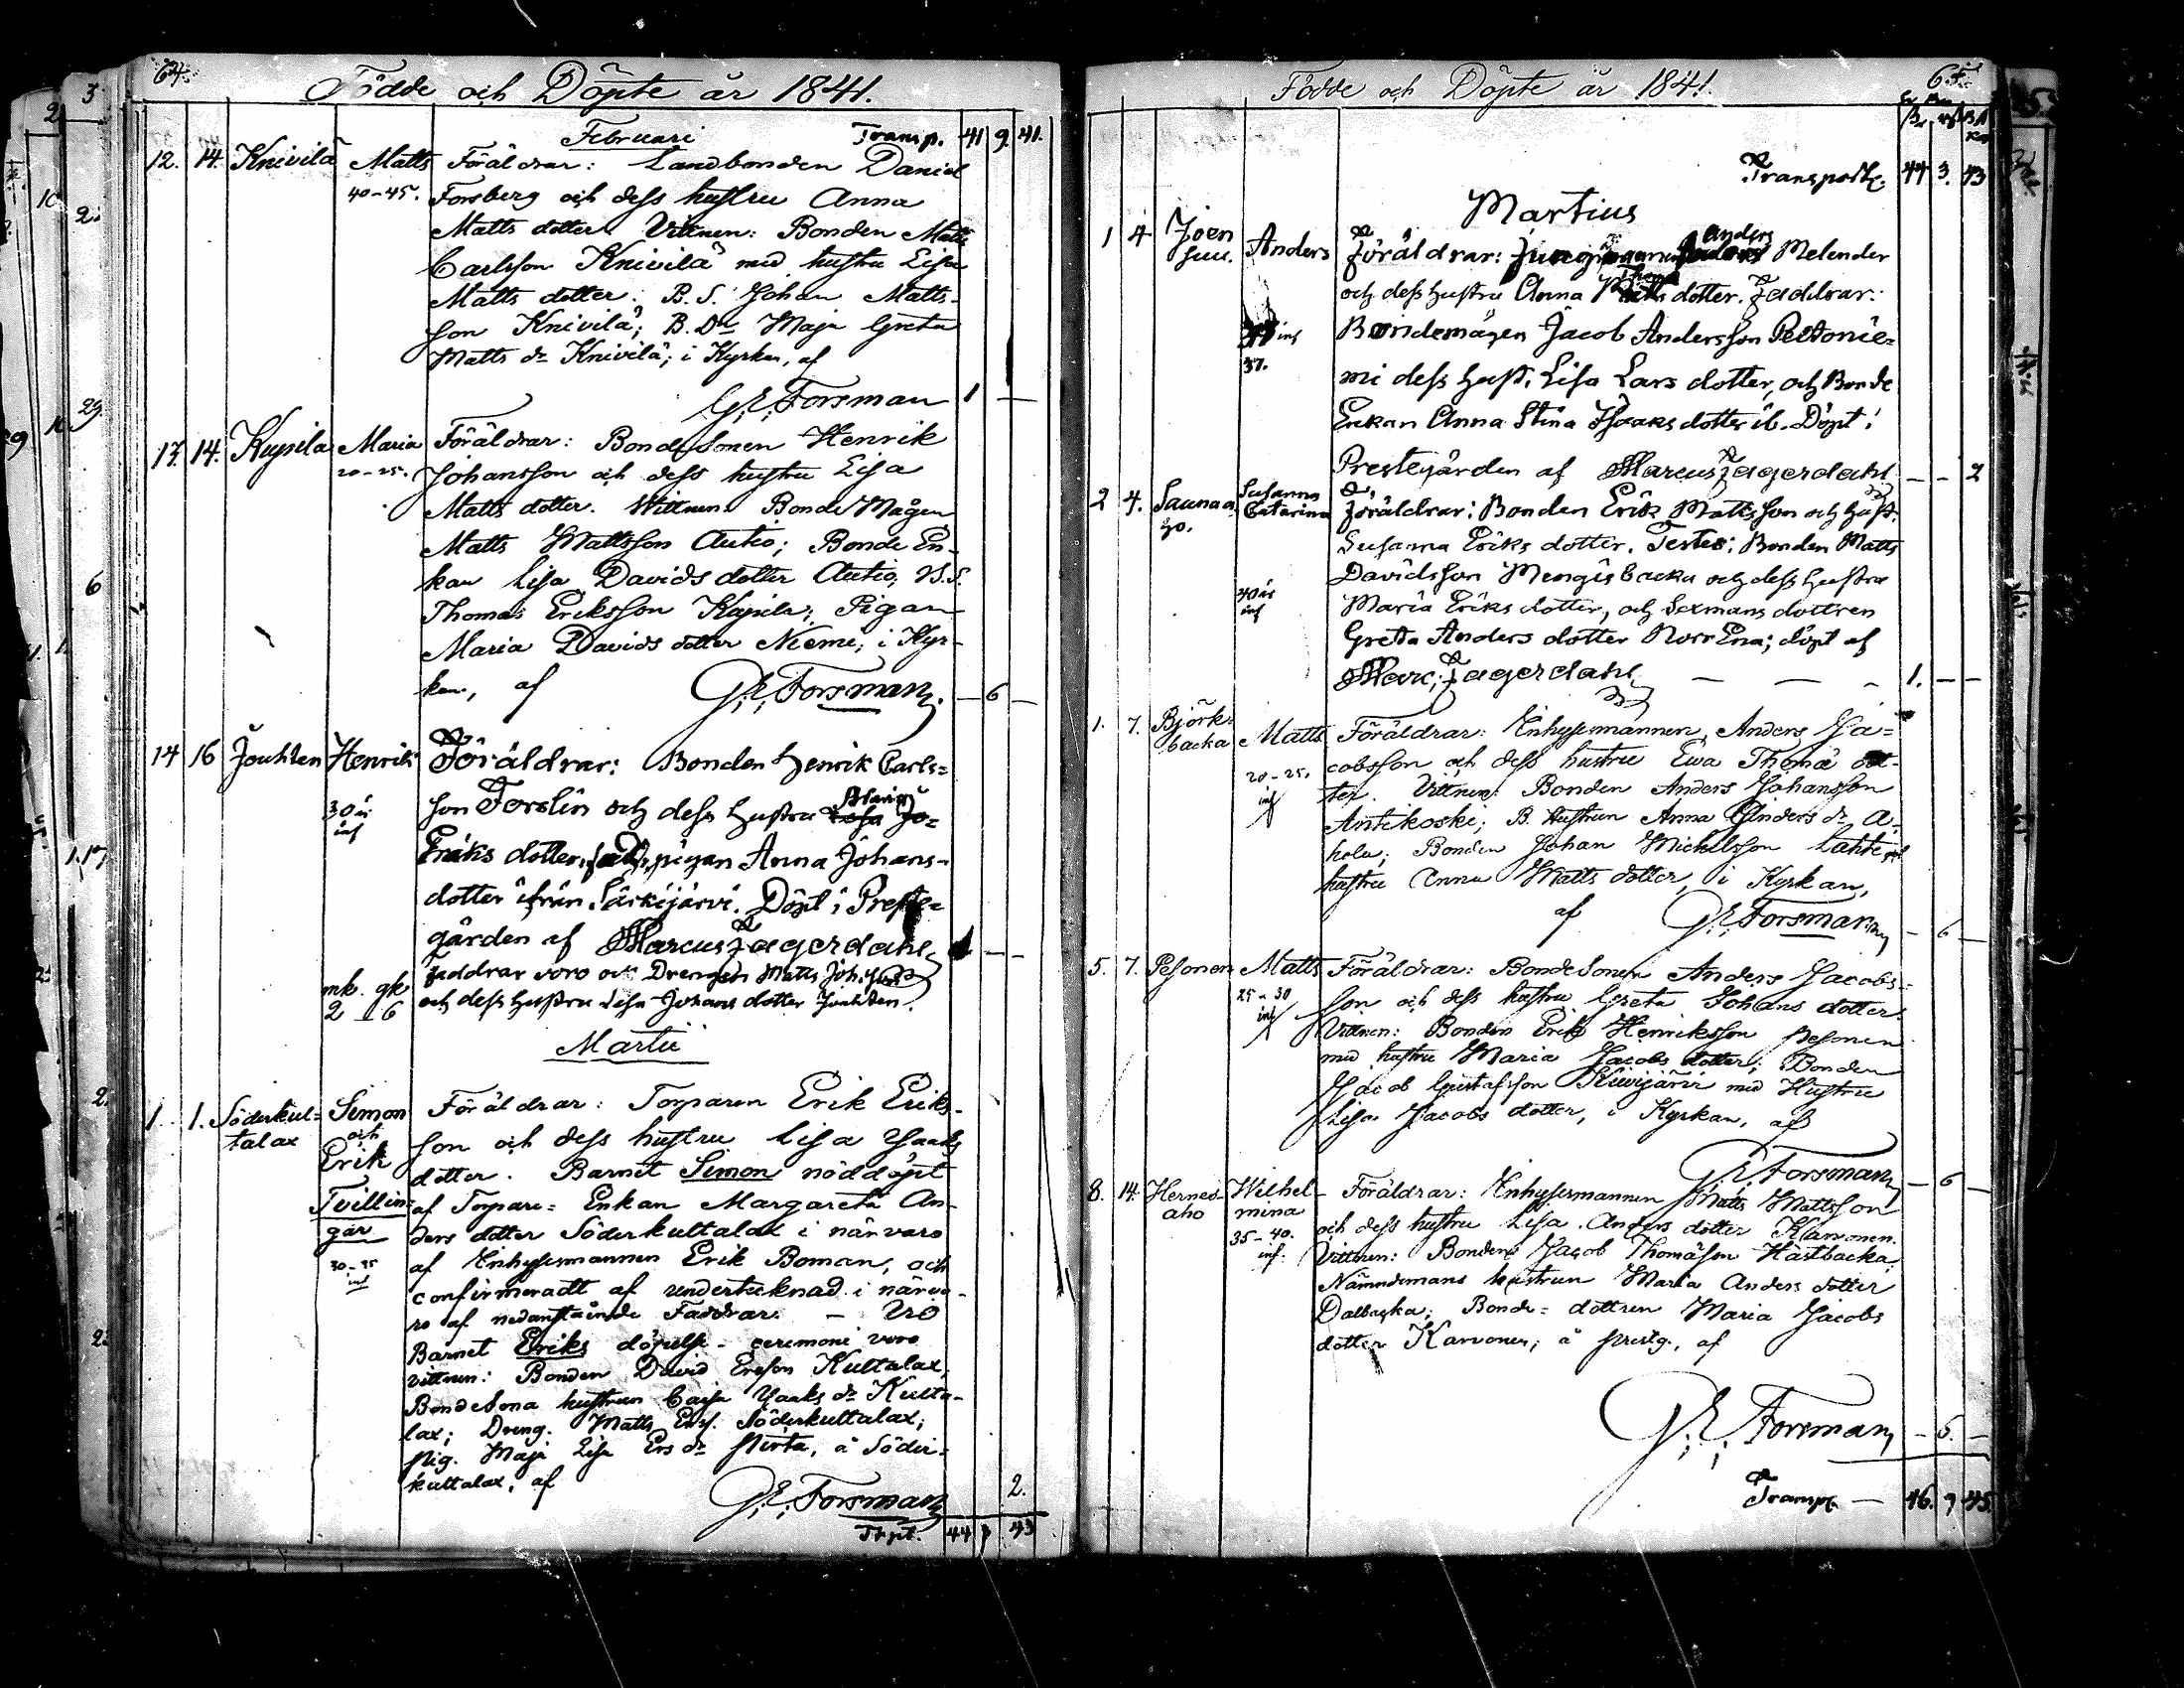 64.
Födde och Döpte år 1841.
Februari Transp. 41 9. 41.
12. 14. Knivilä Matts Föräldrar: Landbonden Daniel
40-45. Forsberg och dess hustru Anna
Matts dotter. Vittnen: Bonden Matts
Carlsson Knivilä med hustru Lisa
Matts dotter. B. S. Johan Matts-
son Knivilä; B. Dr Maja Greta
Matts dr Knivilä; i Kyrkan, af
G. E. Forsman 1 —
13. 14. Kypsilä Maria Föräldrar: BondeSonen Henrik
20-25. Johansson och dess hustru Lisa
Matts dotter. Wittnen. Bonde Mågen
Matts Mattsson Autio; Bonde En-
kan Lisa Davids dotter Autio,
Thomas Eriksson Pigan
Maria Davids dotter Niemi; i Kyr-
kan, af G. E. Forsman. — 6 —
14 16 Jouhten Henrik Föräldrar: Bonden Henrik Carls=
30 år son Forslin och dess hustru Maria
inf Eriks dotter, pigan Anna Johans-
dotter ifrån Särkijärvi. Döpt i Preste=
gården af Marcus Fagerdahl — —
Faddrar voro ock Drengen Matts Joh.
mk. gk och dess hustru Lisa Johans dotter Jouhten.
2 16
Martii
1. 1. Söderkul= Simon Föräldrar: Torparen Erik Eriks-
talax och son och dess hustru Lisa Isaaks
Erik dotter. Barnet Simon nöddöpt
Tvillin= af Torpare= Enkan Margareta An-
gar ders dotter Söderkultalax i närvaro
30-35 af Inhysesmannen Erik Boman, och
inf confirmeradt af undertecknad i närva-
ro af nedanstående Faddrar. — Vid
Barnet Eriks döpelse-ceremoni voro
vittnen: Bonden David Ersson Kultalax,
BondeSona hustrun Cajsa Isaaks dr Kulta-
lax; Dreng. Matts Erss. Söderkultalax;
Pig. Maja Lisa Ers dr Pirta, å Söder=
kultalax, af G. E. Forsman 2.
Trpt. 44 9 43
65.
Födde och Döpte år 1841.
Transport. 44 3. 43
Martius
1 4 Joen Anders Föräldrar: Anders Melender
suu. och dess hustru Anna dotter. Faddrar:
inf Bondemågen Jacob Andersson Peltonie=
37. mi dess hust. Lisa Lars dotter, och Bonde
Enkan Anna Stina Isaaks dotter ib. Döpt i
Prestegården af Marcus Fagerdahl — — 2
2 4. Sauna a, Susanna Catarina Föräldrar: Bonden Erik Mattsson och hust.
ho. Susanna Eriks dotter. Testes: Bonden Matts
Davidsson Mengisbacka och dess hustru
40 år Maria Eriks dotter, och Sexmans dottren
inf Greta Anders dotter Norr Ena; döpt af
Marc. Fagerdahl. — — — 1. — —
1. 7. Björk= Matts Föräldrar: Inhysesmannen, Anders Ja=
backa 20-25. cobsson och dess hustru Ewa Thomä dot-
inf ter. Vittnen: Bonden Anders Johansson
Antikoski; B. Hustrun Anna Anders dr A-
hola; Bonden Johan Mickelsson Lahti
hustru Anna Matts dotter, i Kyrkan,
af G. E. Forsman — 6 —
5. 7. Pesonen Matts Föräldrar: BondeSonen Anders Jacobs=
25-30 son och dess hustru Greta Johans dotter.
inf Vittnen: Bonden Erik Henriksson Pesonen
med hustru Maria Jacobs dotter; Bonden
Jacob Gustafsson Kivijärvi med Hustru
Lisa Jacobs dotter, i Kyrkan, af
G. E. Forsman — 6 —
8. 14. Hernes- Wilhel- Föräldrar: Inhysesmannen Matts Mattsson
aho mina och dess hustru Lisa Anders dotter Karvonen.
35-40. inf. Vittnen: Bonden Jacob Thomäson Hästbacka,
Nämndemans hustrun Maria Anders dotter
Dalbacka; Bonde= dottren Maria Jacobs
dotter Karvonen; å prestg., af
G. E. Forsman — 6. —
Transp. — 46. 9 45.